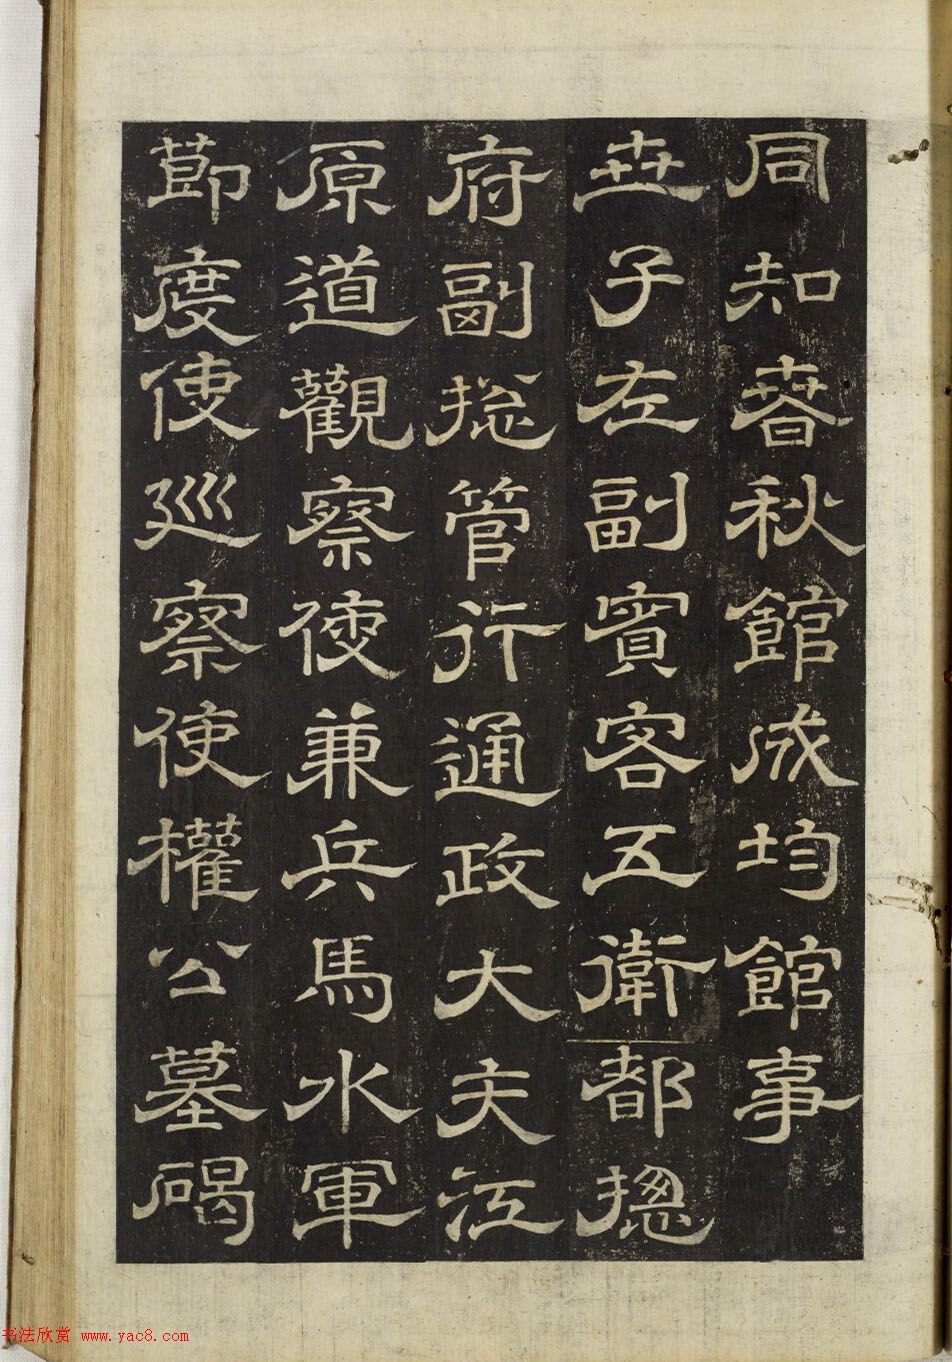 同知春秋館成均館事
世子左副賓客五衛都摠
府副摠管行通政大夫江
原道觀察使兼兵馬水軍
節度使巡察使權公墓碣
书法欣赏 www.yac8.com